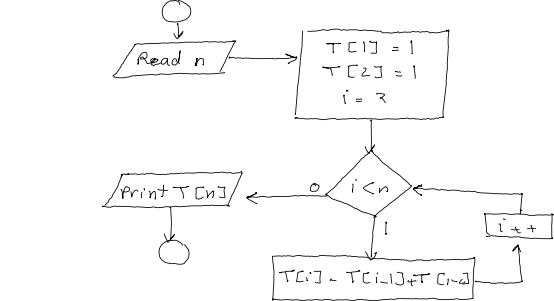 Read n
T[1] = 1
T[2] = 1
i = 3
i < n
0
1
Print T[n]
i++
T[i] = T[i-1] + T[i-2]